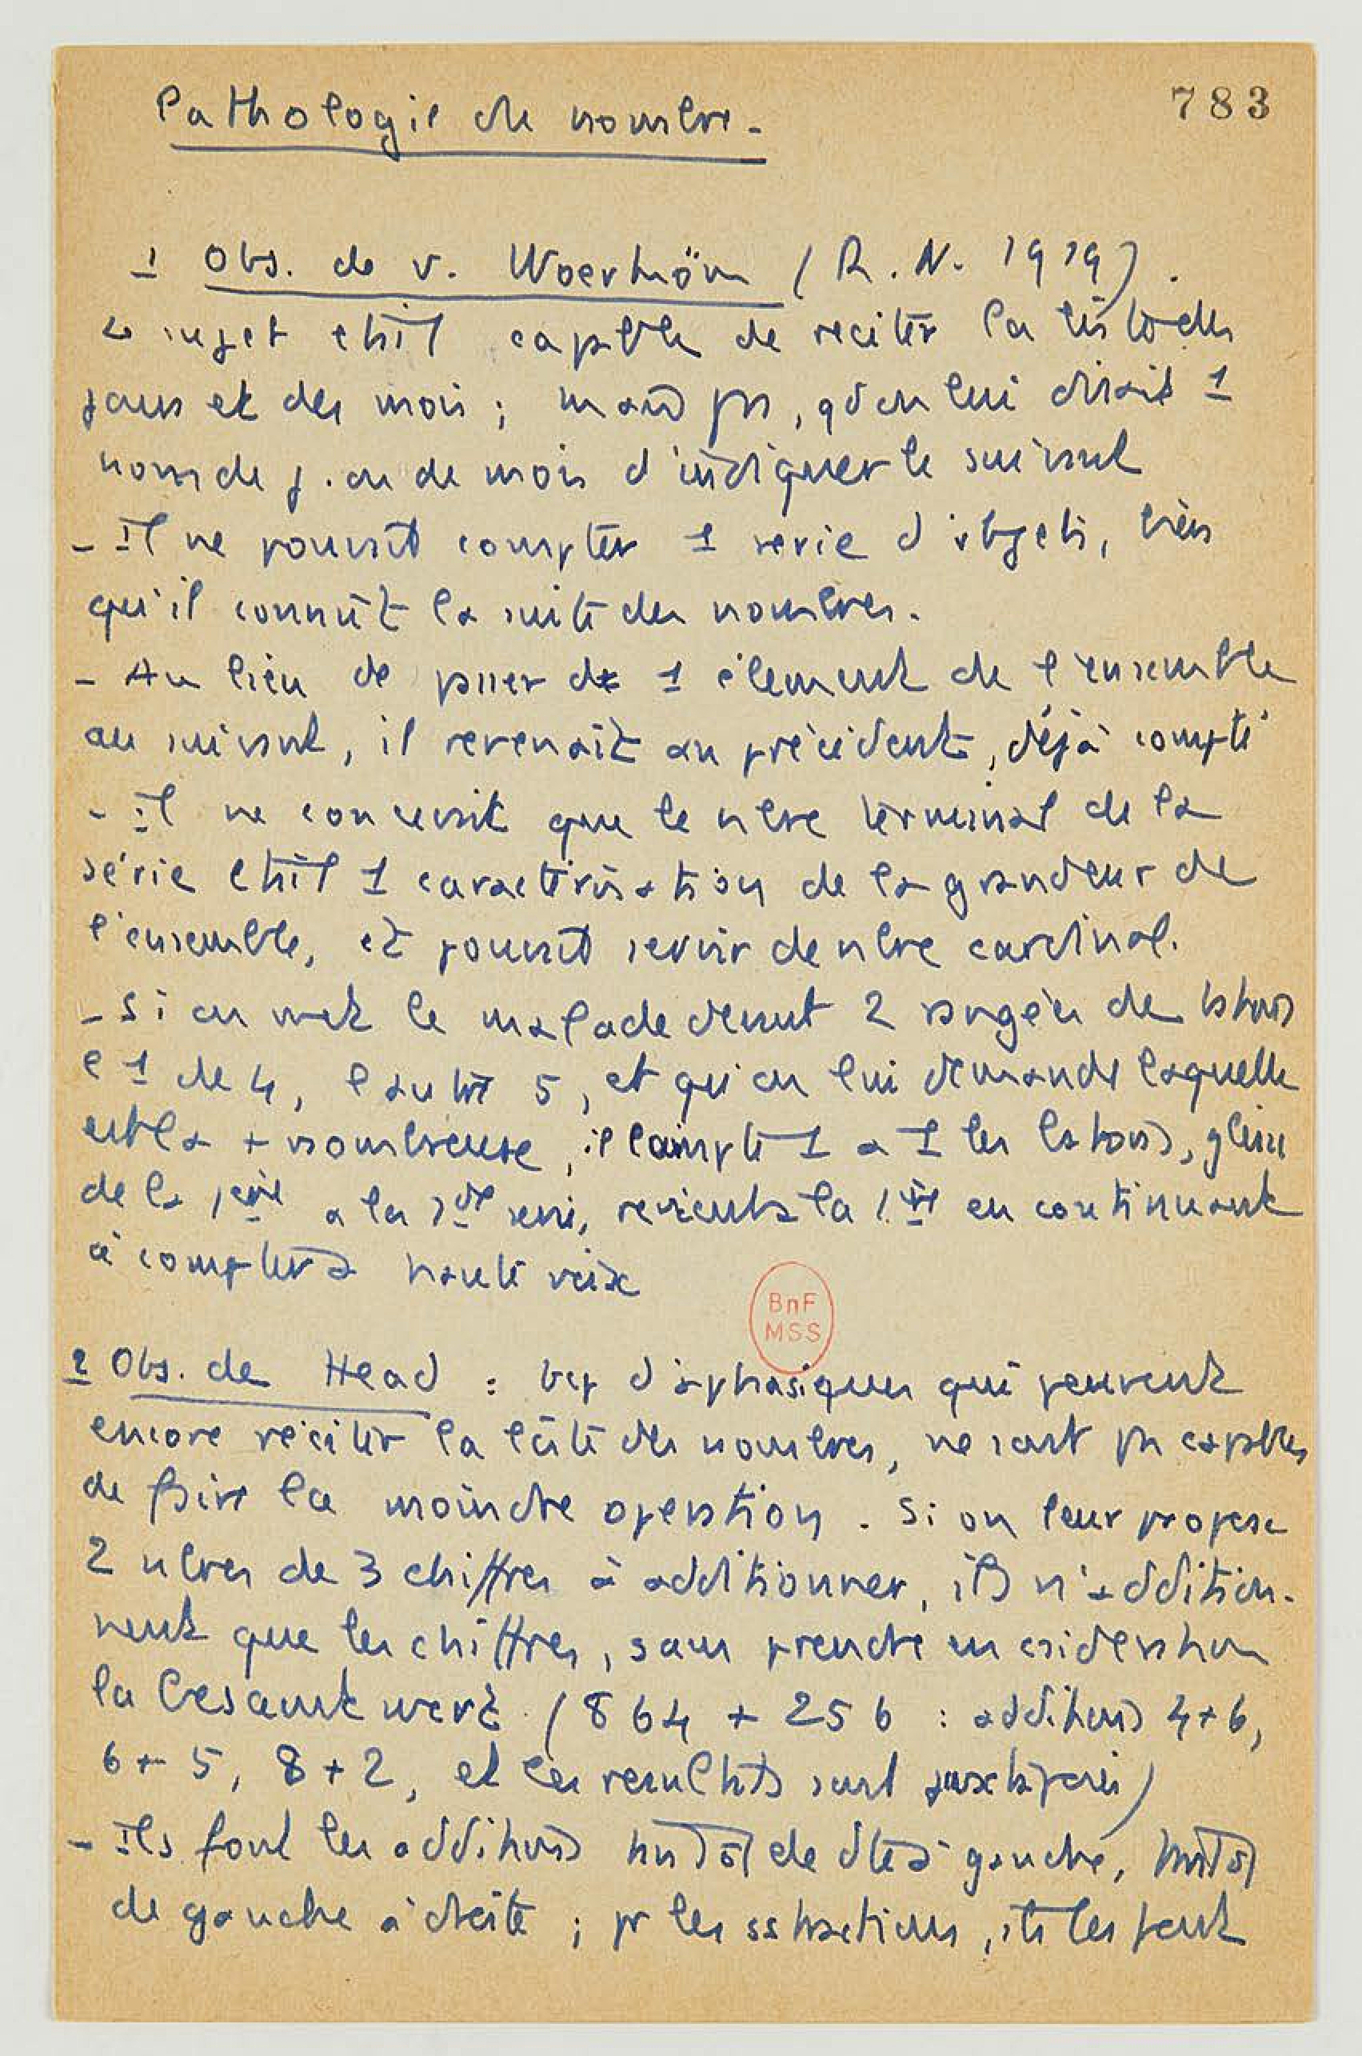 Pathologie du nombre.
783
1 Obs. de v. Woerköm (R.N. 1919).
Le sujet était capable de réciter la liste des
jours et des mois ; mais pas, qd on lui disait 1
nom de j. ou de mois d'indiquer le suivant
- Il ne pouvait compter 1 serie d'objets, bien
qu'il connût la suite des nombres.
- Au lieu de passer de 1 élement de l'ensemble
au suivant, il revenait au précédent, déjà compté
- Il ne concevait que le nbre terminal de la
série était 1 caractérisation de la grandeur de
l'ensemble, et pouvait servir de nbre cardinal.
- Si on met le malade devant 2 rangées de batons
l'1 de 4, l'autre 5, et qu'on lui demande laquelle
est la + nombreuse, il compte 1 a 1 les batons, glisse
de la 1ère a la 2de serie, revient a la 1ère en continuant
à compter a haute voix
BnF
MSS
2 Obs. de Head : bcp d'aphasiques qui peuvent
encore réciter la liste des nombres, ne sont pas capables
de faire la moindre operation. Si on leur propose
2 nbres de 3 chiffres à additionner, ils n'addition-
nent que les chiffres, sans prendre en csideration
la Gesamtwert (864 + 256 : additions 4+6,
6+5, 8+2, et les resultats sont juxtaposés)
- Ils font les additions tantôt de dte à gauche, tantôt
de gauche à droite ; pr les sstractions, ils les font